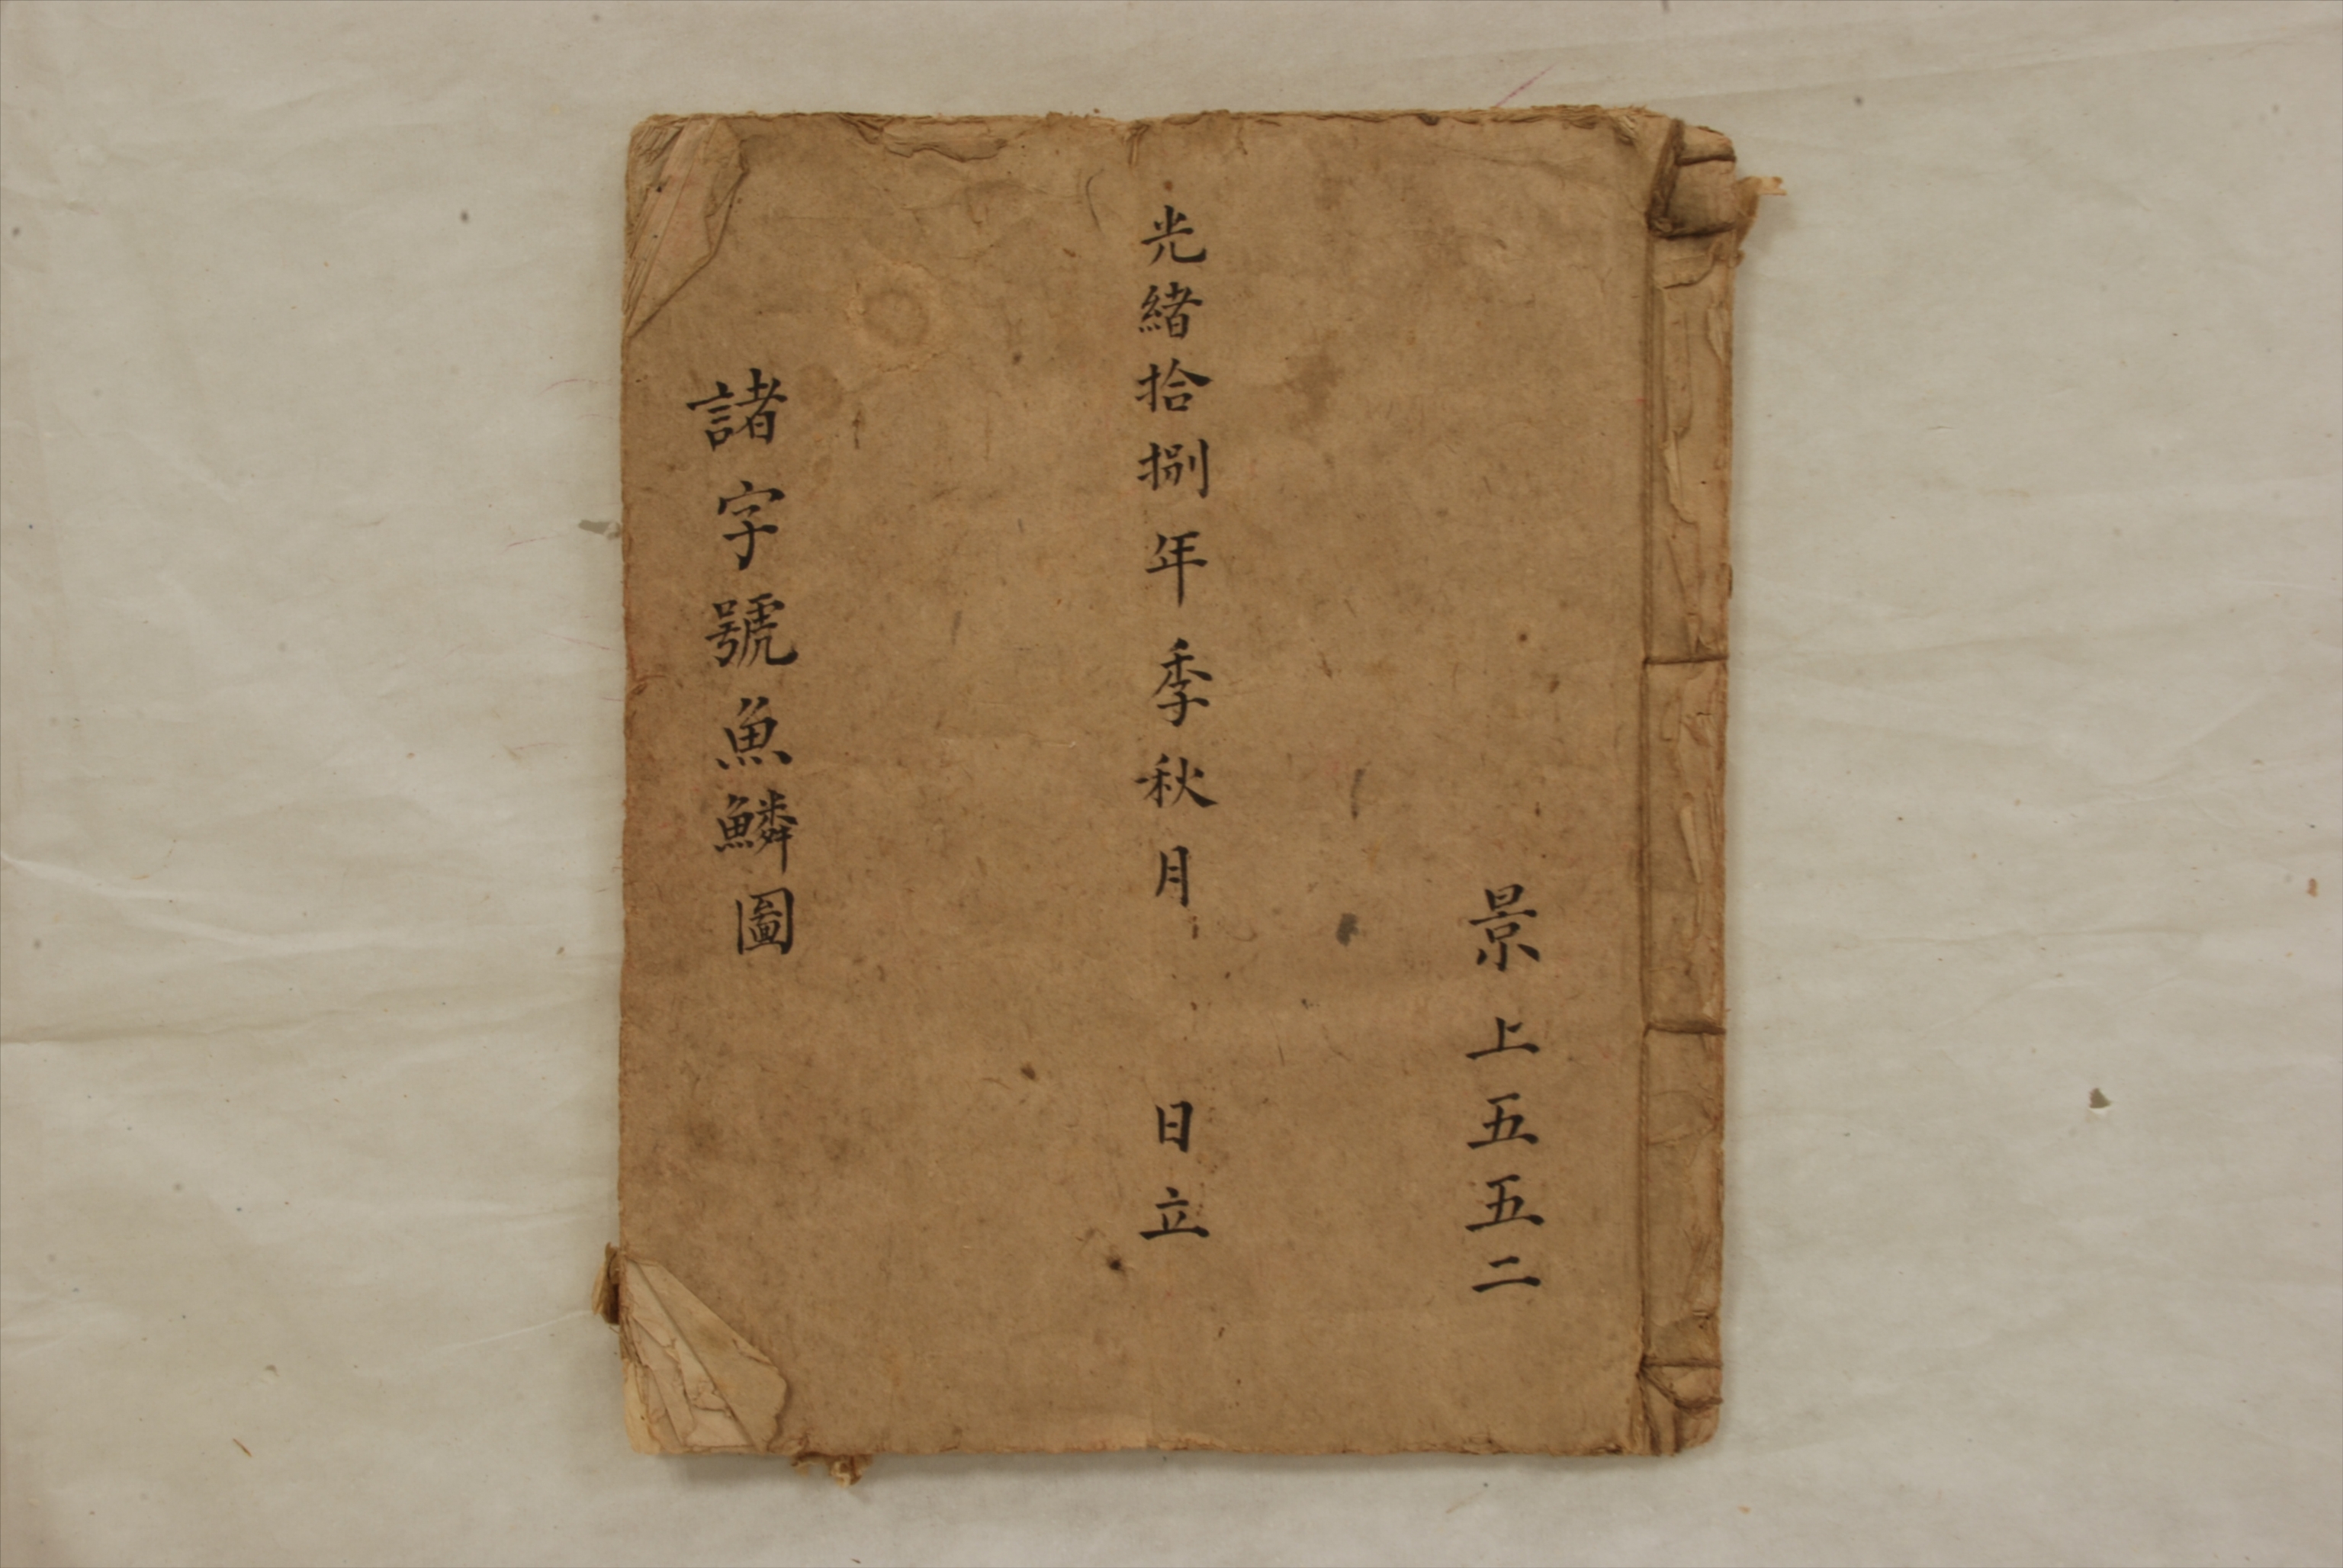 景上五五二
光緒拾捌年季秋月 日立
諸字號魚鱗圖